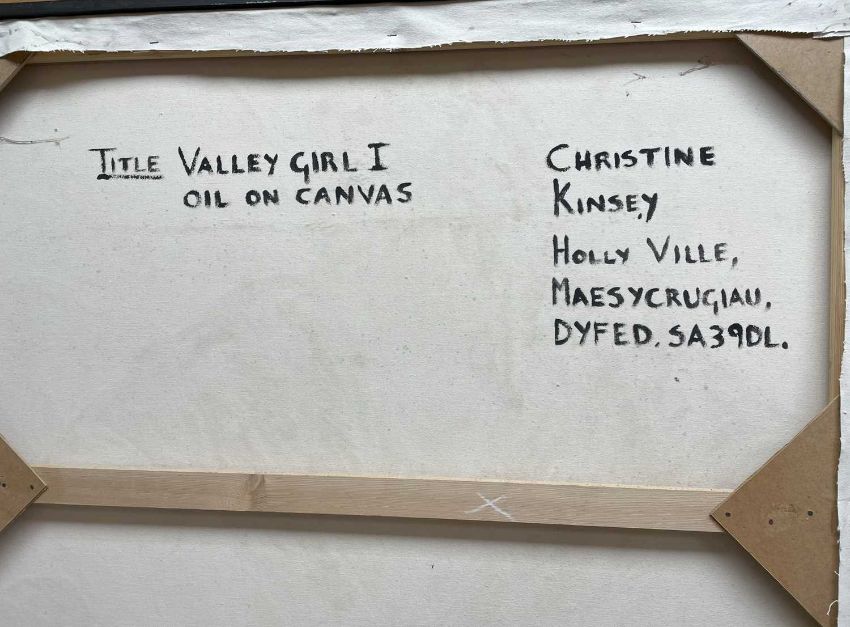 TITLE VALLEY GIRL I
OIL ON CANVAS
CHRISTINE
KINSEY
HOLLY VILLE,
MAESYCRUGIAU.
DYFED. SA39DL.